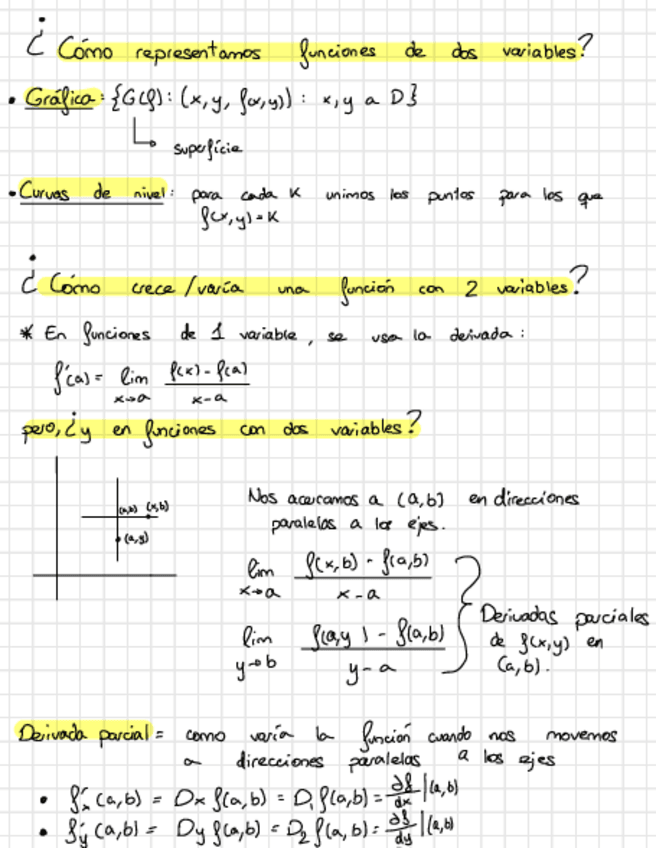 ¿ Cómo representamos funciones de dos variables?
• Gráfica: {G(f): (x, y, f(x,y)) : x,y a D}
↳ superfície
• Curvas de nivel: para cada K unimos los puntos para los que
f(x,y)=K
¿ Cómo crece/varía una función con 2 variables?
* En funciones de 1 variable, se usa la derivada:
f'(a) = lim x→a (f(x) - f(a)) / (x-a)
pero, ¿y en funciones con dos variables?
(a,b) (x,b)
(a,y)
Nos acercamos a (a,b) en direcciones
paralelas a los ejes.
lim x→a (f(x,b) - f(a,b)) / (x-a)
lim y→b (f(a,y) - f(a,b)) / (y-a)
} Derivadas parciales
de f(x,y) en
(a,b).
Derivada parcial = como varía la función cuando nos movemos
a direcciones paralelas a los ejes
• f'x (a,b) = Dx f(a,b) = D₁ f(a,b) = ∂f/dx |(a,b)
• f'y (a,b) = Dy f(a,b) = D₂ f(a,b) = ∂f/dy |(a,b)